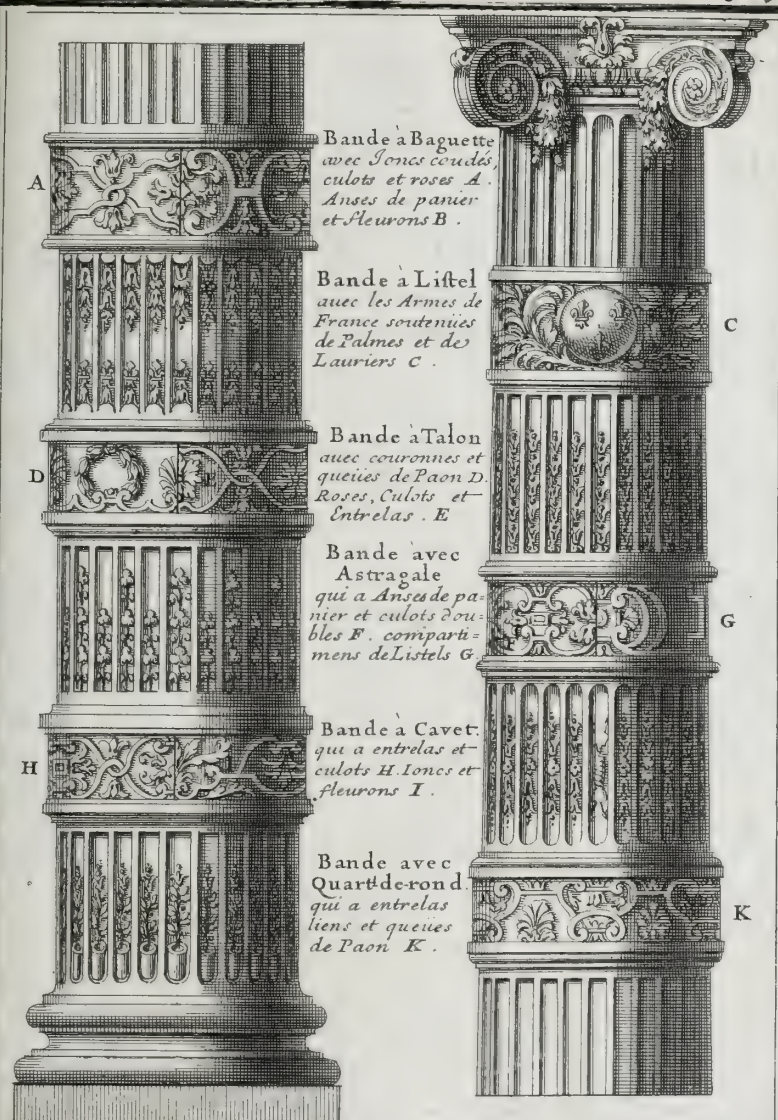 Bande à Baguette
avec Joncs coudés,
culots et roses A.
Anses de panier
et fleurons B.
A
Bande à Liſtel
auec les Armes de
France soutenües
de Palmes et de
Lauriers C.
C
Bande à Talon
auec couronnes et
queües de Paon D.
Roses, Culots et
Entrelas. E
D
Bande avec
Astragale
qui a Anses de pa=
nier et culots dou=
bles F. comparti=
mens de Listels G.
G
Bande à Cavet.
qui a entrelas et
culots H. Ioncs et
fleurons I.
H
Bande avec
Quart-de-rond.
qui a entrelas
liens et queües
de Paon K.
K